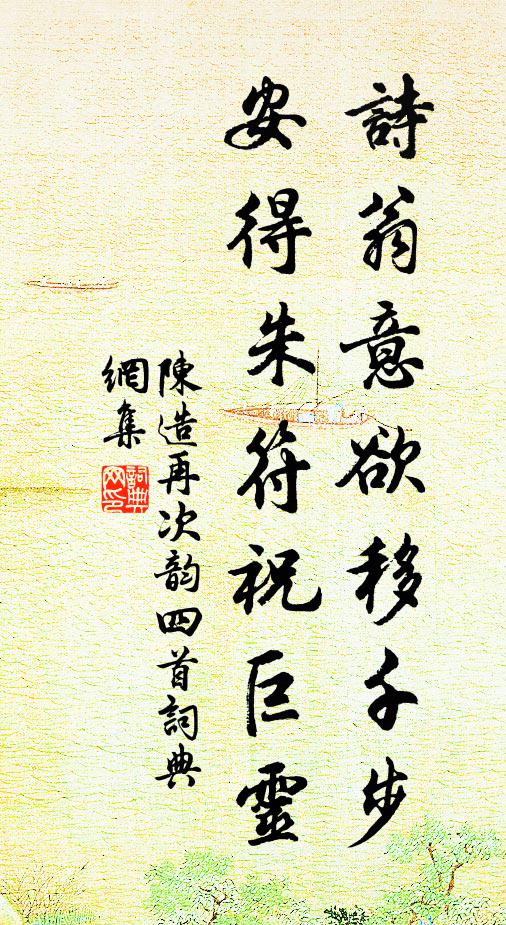 詩翁意欲移千步
安得朱符祝巨靈
陳造再次韵四首詞典
網集
詞典
网印